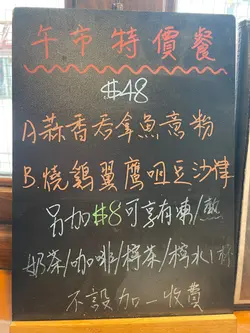 午市特價餐
$48
A.蒜香吞拿魚意粉
B.燒鷄翼鷹咀豆沙律
另加$8可享有凍/熱
奶茶/咖啡/檸茶/檸水/
不設加一收費